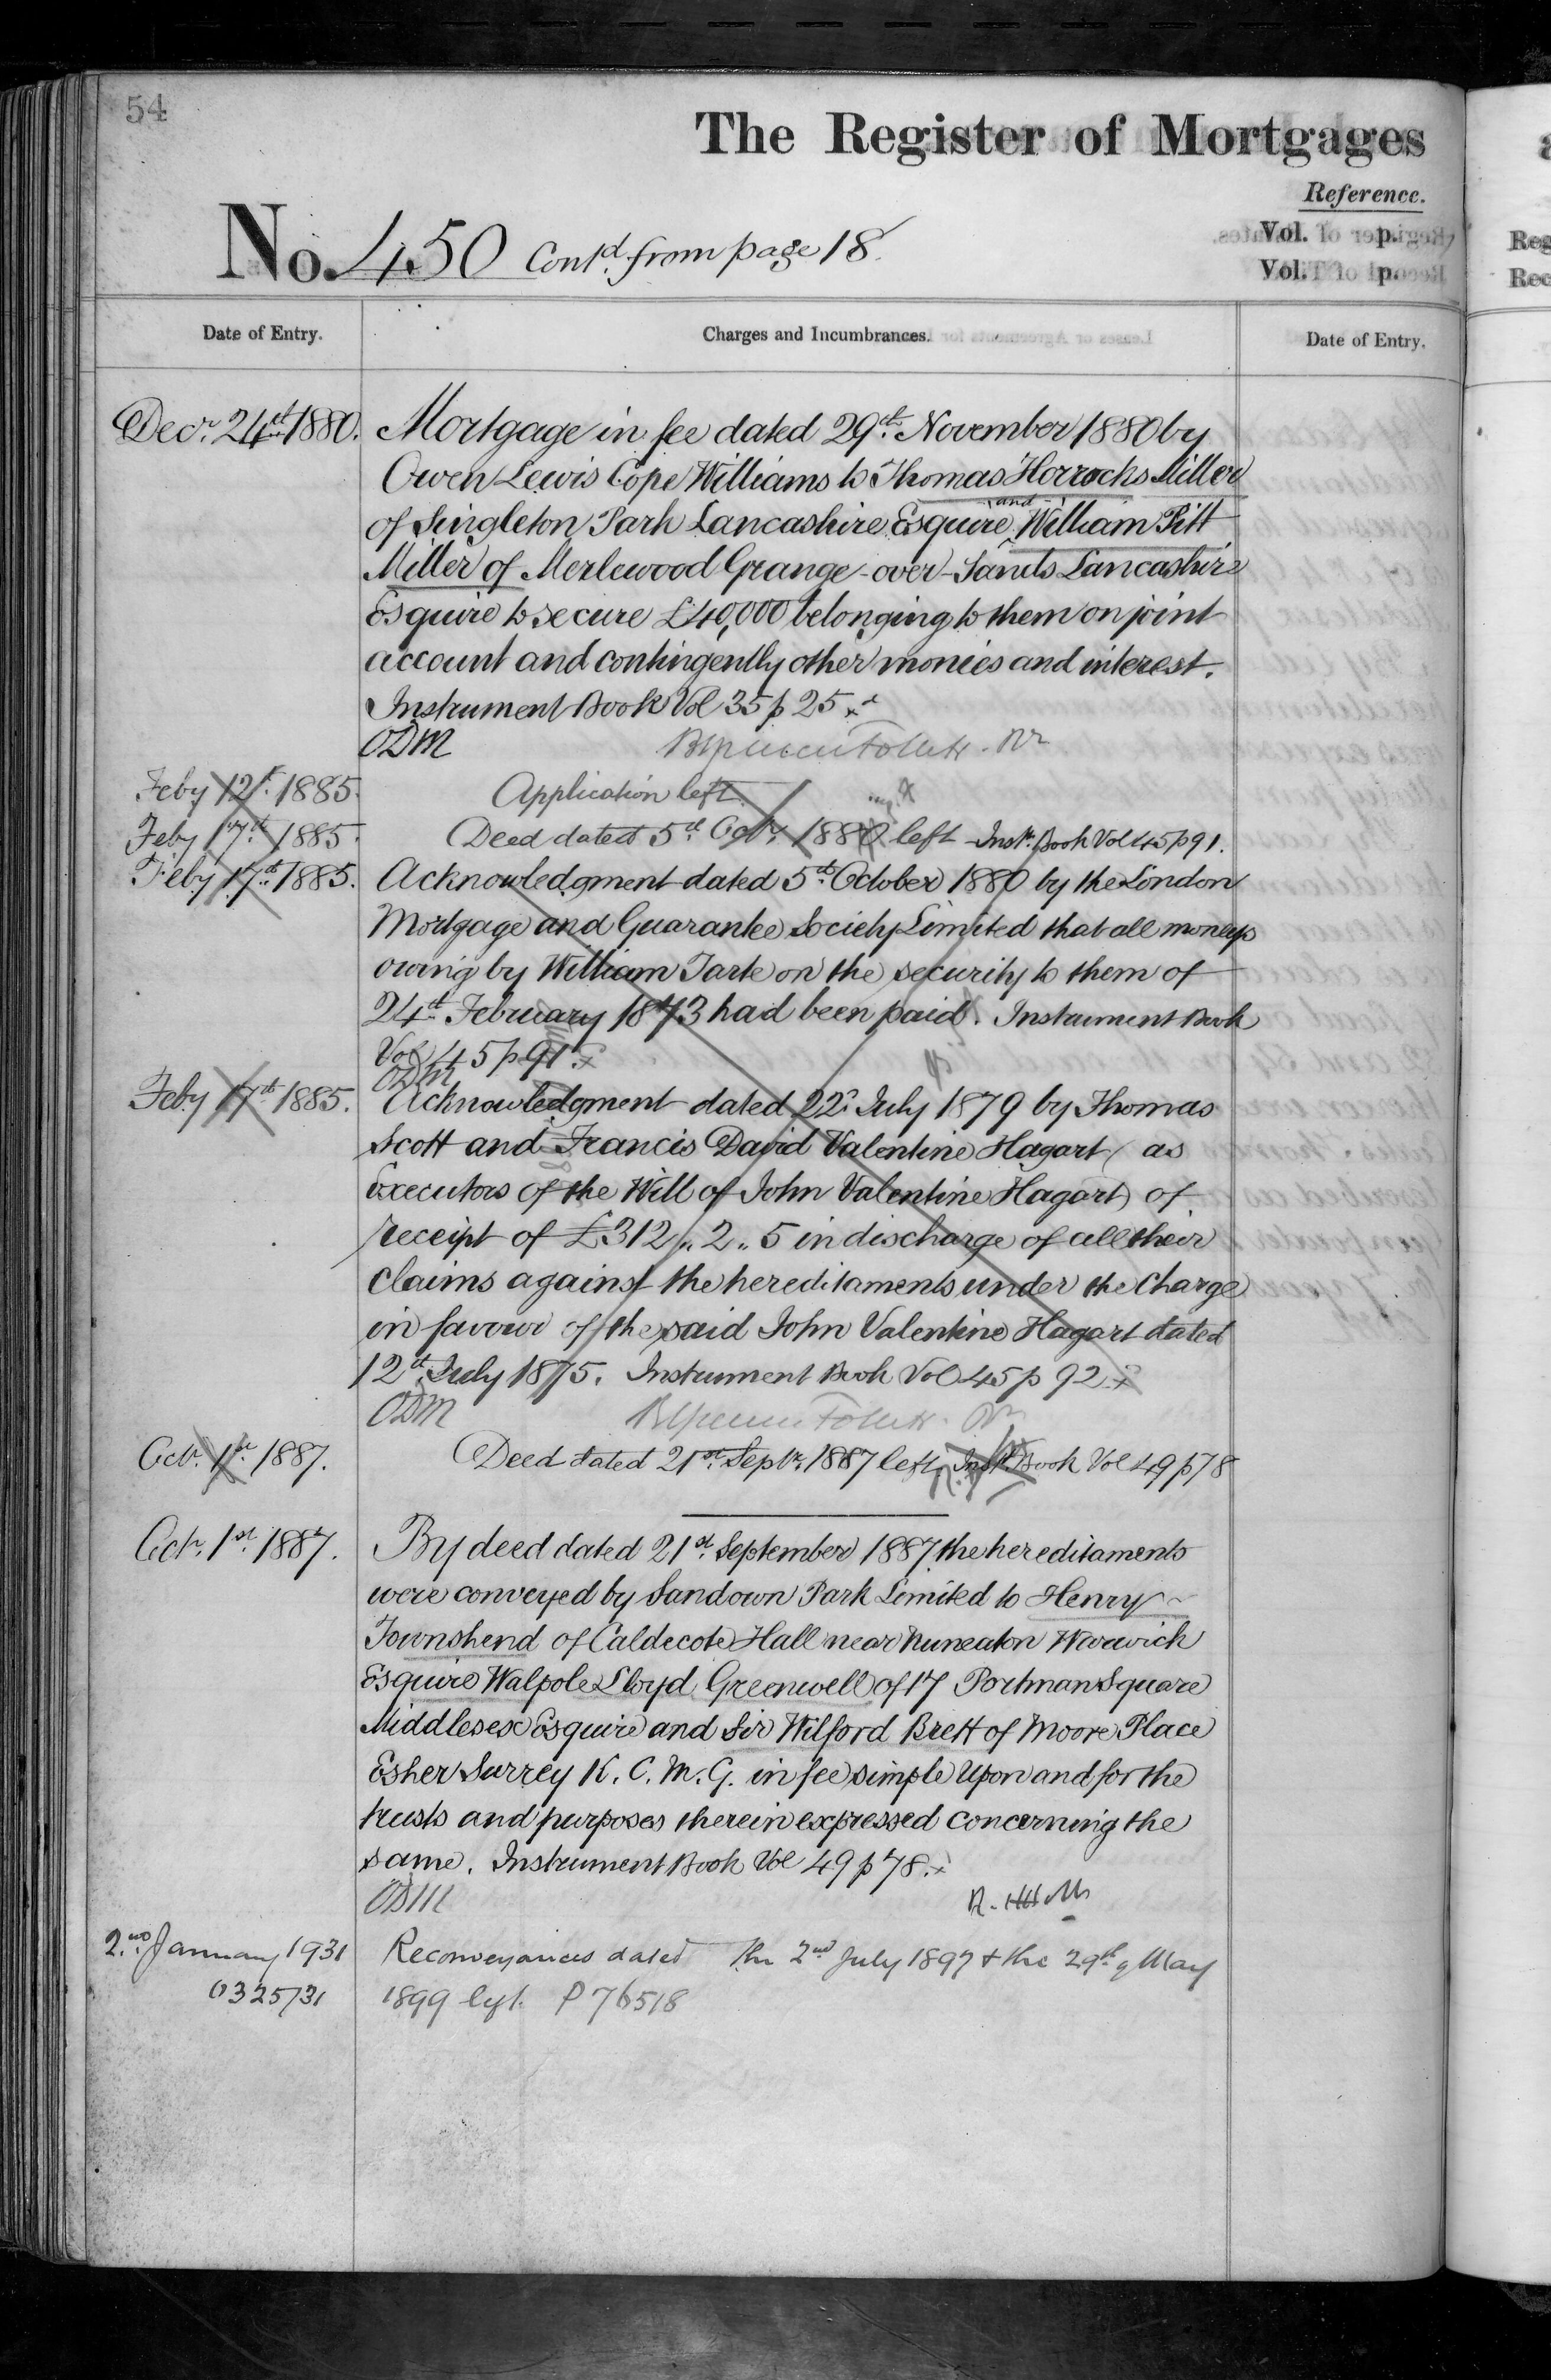 54
The Register of Mortgages
Reference.
Vol. p.
Vol. p.
No. 450 Contd. from page 18.
Date of Entry.
Charges and Incumbrances.
Date of Entry.
Decr. 24th 1880. Mortgage in fee dated 29th November 1880 by
Owen Lewis Cope Williams to Thomas Horrocks Miller
of Singleton Park Lancashire Esquire and William Pitt
Miller of Merlewood Grange-over-Sands Lancashire
Esquire to secure £40,000 belonging to them on joint
account and contingently other monies and interest.
Instrument Book Vol 35 p 25 x
ODM
Feby 12th 1885. Application left.
Feby 17th 1885. Deed dated 5th Octr. 1880 left Instr. Book Vol 45 p 91.
Feby 17th 1885. Acknowledgment dated 5th October 1880 by the London
Mortgage and Guarantee Society Limited that all moneys
owing by William Tarte on the security to them of
24th February 1873 had been paid. Instrument Book
Vol 45 p 91. x
ODM
Feby 17th 1885. Acknowledgment dated 22d July 1879 by Thomas
Scott and Francis David Valentine Hagart (as
Executors of the Will of John Valentine Hagart) of
receipt of £312 „ 2 „ 5 in discharge of all their
claims against the hereditaments under the Charge
in favour of the said John Valentine Hagart dated
12th July 1875. Instrument Book Vol 45 p 92 x
ODM
Octr. 1st 1887. Deed dated 21st Septr. 1887 left Instr. Book Vol 49 p 78
Octr. 1st 1887. By deed dated 21st September 1887 the hereditaments
were conveyed by Sandown Park Limited to Henry
Townshend of Caldecote Hall near Nuneaton Warwick
Esquire Walpole Lloyd Greenwell of 17 Portman Square
Middlesex Esquire and Sir Wilford Brett of Moore Place
Esher Surrey K.C.M.G. in fee simple Upon and for the
trusts and purposes therein expressed concerning the
same. Instrument Book Vol 49 p 78. x
ODM
2nd January 1931 Reconveyances dated the 2nd July 1897 & the 29th of May
0325/31 1899 left. P 76518
Reg
Rec